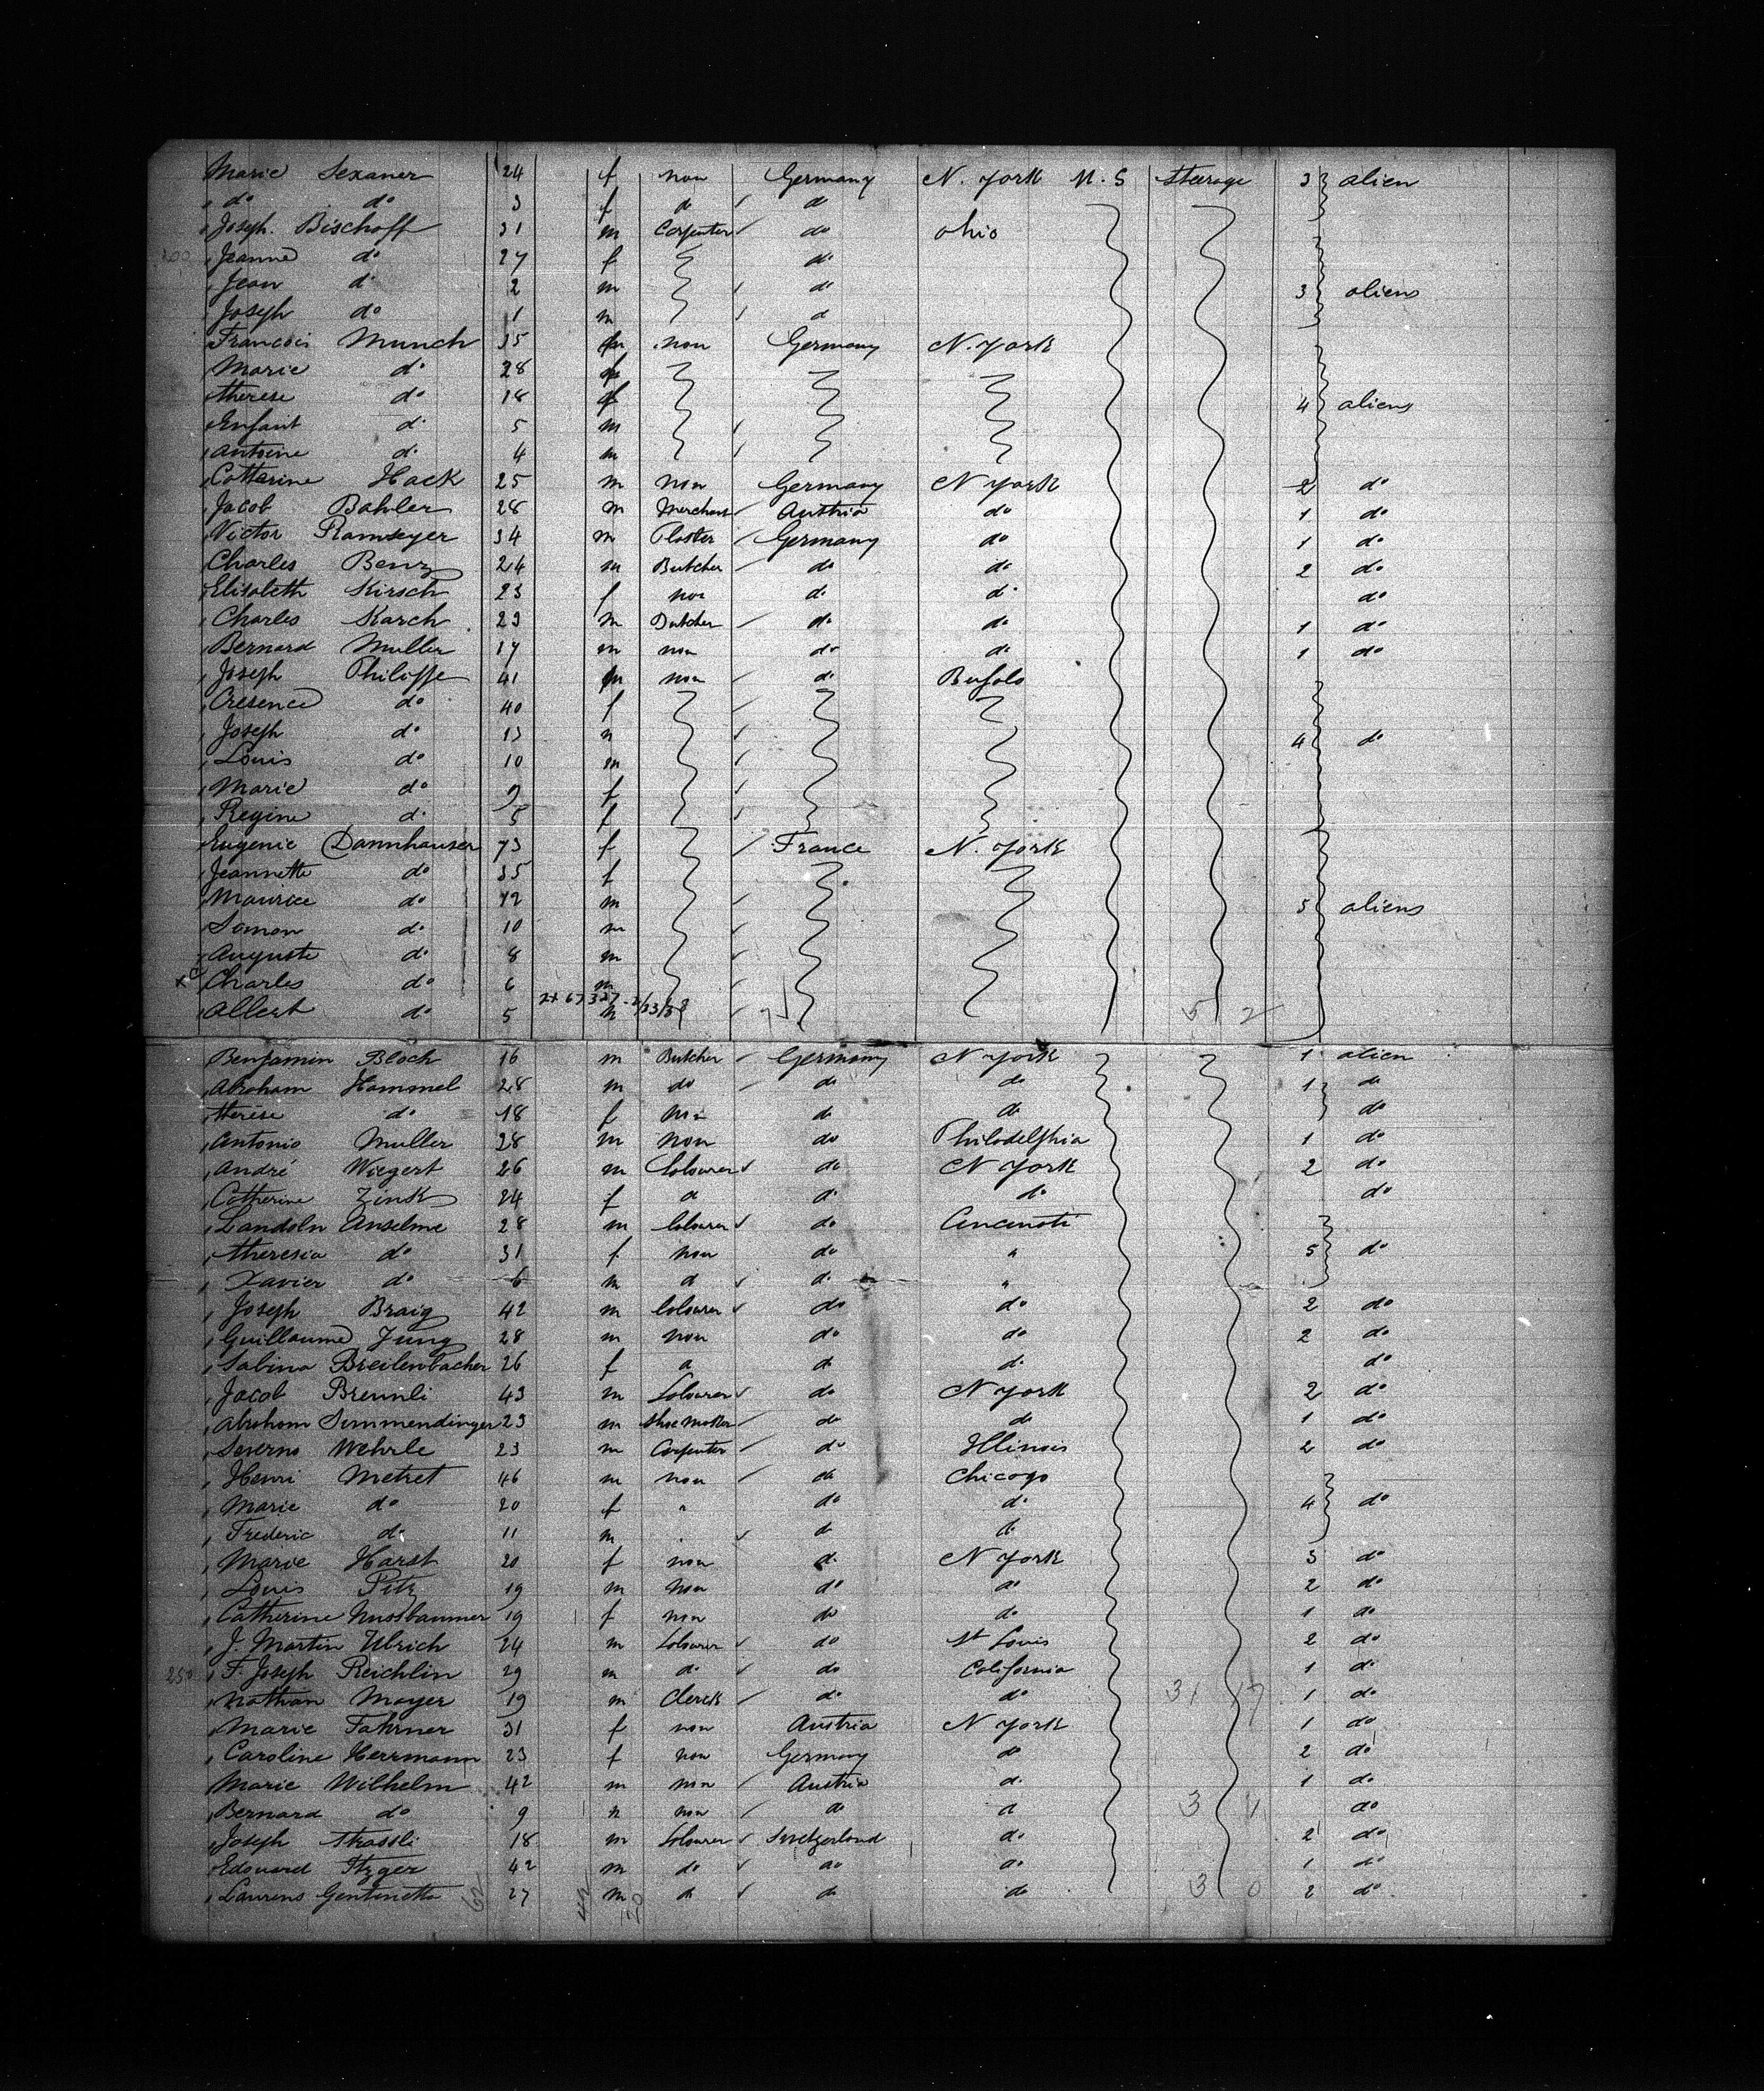 Marie Sexaner 24 f non Germany N. York U.S Steerage 3 alien
do do 3 f do do
Joseph. Bischoff 31 m Carpenter do ohio
200 Jeanne do 27 f do
Jean do 2 m do 3 aliens
Joseph do 1 m d
Francois Munch 35 m non Germany N. York
Marie do 28 f
therese do 18 f 4 aliens
Enfant do 5 m
Antoine do 4 m
Catterine Hack 25 m non Germany N York 2 do
Jacob Bahler 28 m Merchant Austria do 1 do
Victor Ramseyer 34 m Germany do 1 do
Charles Benz 24 m Butcher do do 2 do
Elisabeth Kirsch 23 f non do do do
Charles Karch 23 m Butcher do do 1 do
Bernard Muller 17 m non do do 1 do
Joseph Philippe 41 m non do Bufalo
Cresence do 40 f
Joseph do 13 m 4 do
Louis do 10 m
Marie do 9 f
Regine do 5 f
Eugenie Dannhauser 73 f France N. York
Jeannette do 35 f
Maurice do 12 m 5 aliens
Samon do 10 m
Auguste do 8 m
xc Charles do 6 m
Albert do 5 m 5 2
Benjamin Bloch 16 m Butcher Germany N York 1 alien
Abraham Hammel 28 m do do do 1 do
therese do 18 f non do do do
Antonio Muller 28 m non do Philadelphia 1 do
André Wiegert 26 m labourer do N York 2 do
Catherine Zink 24 f d do do do
Landoln Anselme 28 m labourer do Cincinati
theresia do 31 f non do " 5 do
Xavier do 6 m d do "
Joseph Braig 42 m labourer do do 2 do
Guillaume Jung 28 m non do do 2 do
Sabina Breilenbacher 26 f d do do do
Jacob Breunli 43 m Labourer do N York 2 do
Abraham Summendinger 23 m Shoe Maker do do 1 do
Severno Wehrle 23 m Carpenter do Illinois 2 do
Henri Metret 46 m non do Chicago
Marie do 20 f " do do 4 do
Frederic do 11 m do do
Marie Harst 20 f non do N York 3 do
Louis Pitz 19 m non do do 2 do
Catherine Nussbaumer 19 f non do do 1 do
J. Martin Ulrich 24 m Labourer do St Louis 2 do
250 F. Joseph Reichlin 29 m do do California 1 do
Nathan Mayer 19 m Clerck do do 31 17 1 do
Marie Fahrner 31 f non Austria N York 1 do
Caroline Herrmann 23 f non Germany do 2 do
Marie Wilhelm 42 m non Austria do 1 do
Bernard do 9 m non do d 3 do
Joseph Strassli 18 m Labourer Switzerland do 2 do
Edouard Itzger 42 m do do do 1 do
Laurens Gentinetta 27 m do do do 3 0 2 do
62 42 20